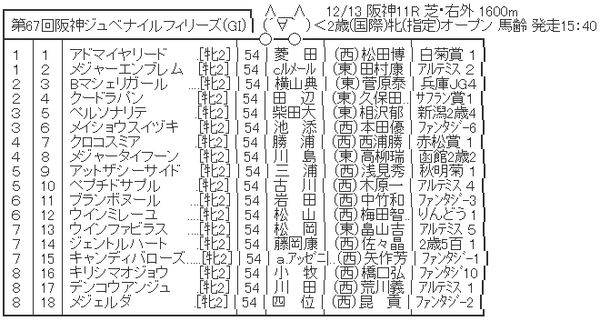 12/13 阪神11R 芝・右外 1600m
第67回阪神ジュベナイルフィリーズ(GI)
(´▽`) <2歳(国際)牝(指定)オープン 馬齢 発走15:40
1 1 アドマイヤリード [牝2] 54 菱田 (西)松田博 白菊賞 1
1 2 メジャーエンブレム [牝2] 54 cルメール (東)田村康 アルテミス 2
2 3 Bマシェリガール ....[牝2] 54 横山典 (東)菅原泰 兵庫JG4
2 4 クードラパン [牝2] 54 田辺 (東)久保田.. サフラン賞1
3 5 ペルソナリテ [牝2] 54 柴田大 (東)相沢郁 新潟2歳4
3 6 メイショウスイヅキ [牝2] 54 池添 (西)本田優 ファンタジー6
4 7 クロコスミア [牝2] 54 勝浦 (西)西浦勝 赤松賞 1
4 8 メジャータイフーン [牝2] 54 川島 (東)高柳瑞 函館2歳2
5 9 アットザシーサイド [牝2] 54 三浦 (西)浅見秀 秋明菊 1
5 10 ペプチドサプル [牝2] 54 古川 (西)木原一 アルテミス 4
6 11 ブランボヌール ....[牝2] 54 岩田 (西)中竹和 ファンタジー3
6 12 ウインミレーユ ....[牝2] 54 松山 (西)梅田智.. りんどう 1
7 13 ウインファビラス [牝2] 54 松岡 (東)畠山吉 アルテミス 5
7 14 ジェントルハート [牝2] 54 藤岡康 (西)佐々晶 2歳5百 1
7 15 キャンディバローズ.....[牝2] 54 a.アッゼニ.. (西)矢作芳 ファンタジー1
8 16 キリシマオジョウ [牝2] 54 小牧 (西)橋口弘 ファンタジ10
8 17 デンコウアンジュ ....[牝2] 54 川田 (西)荒川義 アルテミス 1
8 18 メジェルダ [牝2] 54 四位 (西)昆貢 ファンタジー2